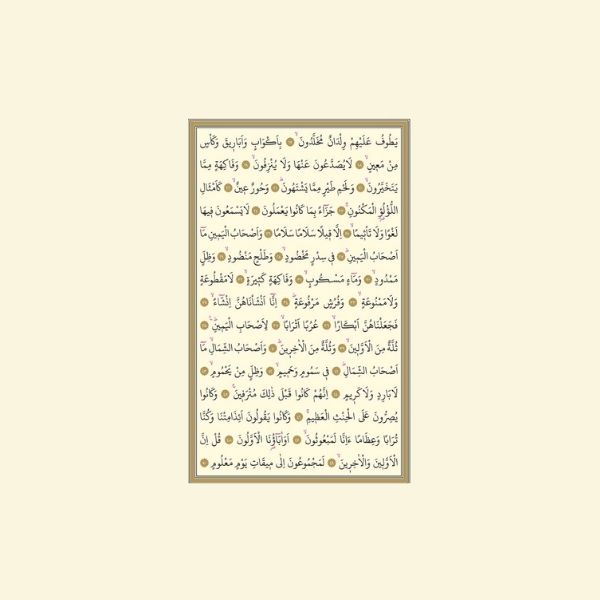 يَطُوفُ عَلَيْهِمْ وِلْدَانٌ مُخَلَّدُونَۙ ﴿١٧﴾ بِاَكْوَابٍ وَاَبَار۪يقَ وَكَأْسٍ
مِنْ مَع۪ينٍۙ ﴿١٨﴾ لَا يُصَدَّعُونَ عَنْهَا وَلَا يُنْزِفُونَۙ ﴿١٩﴾ وَفَاكِهَةٍ مِمَّا
يَتَخَيَّرُونَۙ ﴿٢٠﴾ وَلَحْمِ طَيْرٍ مِمَّا يَشْتَهُونَۜ ﴿٢١﴾ وَحُورٌ ع۪ينٌۙ ﴿٢٢﴾ كَاَمْثَالِ
اللُّؤْلُؤِ الْمَكْنُونِۚ ﴿٢٣﴾ جَزَٓاءً بِمَا كَانُوا يَعْمَلُونَ ﴿٢٤﴾ لَا يَسْمَعُونَ ف۪يهَا
لَغْوًا وَلَا تَأْث۪يمًاۙ ﴿٢٥﴾ اِلَّا ق۪يلًا سَلَامًا سَلَامًا ﴿٢٦﴾ وَاَصْحَابُ الْيَم۪ينِ مَٓا
اَصْحَابُ الْيَم۪ينِۜ ﴿٢٧﴾ ف۪ي سِدْرٍ مَخْضُودٍۙ ﴿٢٨﴾ وَطَلْحٍ مَنْضُودٍۙ ﴿٢٩﴾ وَظِلٍّ
مَمْدُودٍۙ ﴿٣٠﴾ وَمَٓاءٍ مَسْكُوبٍۙ ﴿٣١﴾ وَفَاكِهَةٍ كَث۪يرَةٍۙ ﴿٣٢﴾ لَا مَقْطُوعَةٍ
وَلَا مَمْنُوعَةٍۙ ﴿٣٣﴾ وَفُرُشٍ مَرْفُوعَةٍۜ ﴿٣٤﴾ اِنَّٓا اَنْشَأْنَاهُنَّ اِنْشَٓاءًۙ ﴿٣٥﴾
فَجَعَلْنَاهُنَّ اَبْكَارًاۙ ﴿٣٦﴾ عُرُبًا اَتْرَابًاۙ ﴿٣٧﴾ لِاَصْحَابِ الْيَم۪ينِۜ ﴿٣٨﴾
ثُلَّةٌ مِنَ الْاَوَّل۪ينَۙ ﴿٣٩﴾ وَثُلَّةٌ مِنَ الْاٰخِر۪ينَۜ ﴿٤٠﴾ وَاَصْحَابُ الشِّمَالِۙ مَٓا
اَصْحَابُ الشِّمَالِۜ ﴿٤١﴾ ف۪ي سَمُومٍ وَحَم۪يمٍۙ ﴿٤٢﴾ وَظِلٍّ مِنْ يَحْمُومٍۙ ﴿٤٣﴾
لَا بَارِدٍ وَلَا كَر۪يمٍ ﴿٤٤﴾ اِنَّهُمْ كَانُوا قَبْلَ ذٰلِكَ مُتْرَف۪ينَۚ ﴿٤٥﴾ وَكَانُوا
يُصِرُّونَ عَلَى الْحِنْثِ الْعَظ۪يمِۚ ﴿٤٦﴾ وَكَانُوا يَقُولُونَ اَئِذَا مِتْنَا وَكُنَّا
تُرَابًا وَعِظَامًا ءَاِنَّا لَمَبْعُوثُونَۙ ﴿٤٧﴾ اَوَاٰبَٓاؤُ۬نَا الْاَوَّلُونَ ﴿٤٨﴾ قُلْ اِنَّ
الْاَوَّل۪ينَ وَالْاٰخِر۪ينَۙ ﴿٤٩﴾ لَمَجْمُوعُونَ اِلٰى م۪يقَاتِ يَوْمٍ مَعْلُومٍ ﴿٥٠﴾